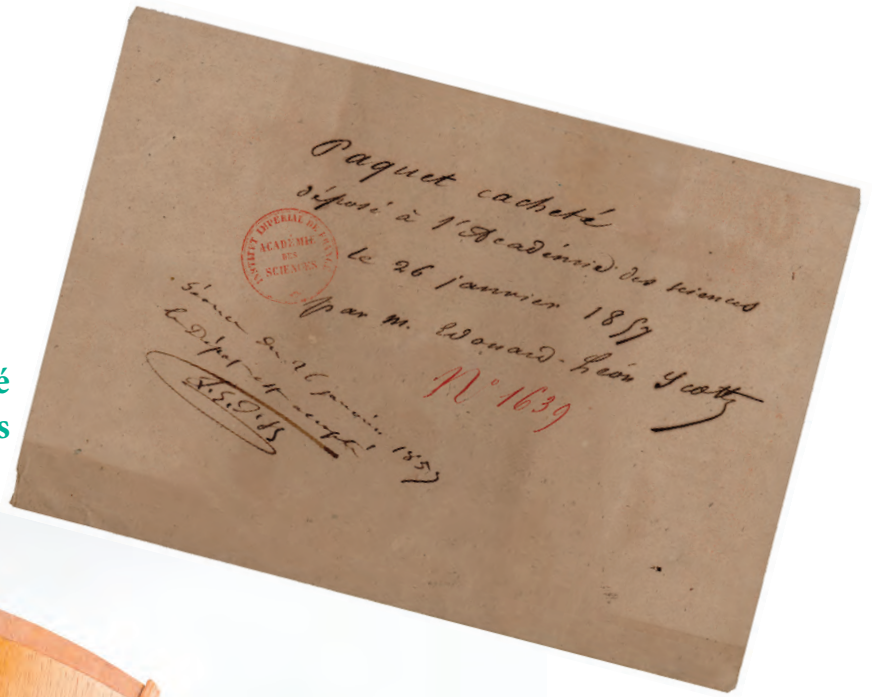 Paquet cacheté
déposé à l'Académie des sciences
le 26 janvier 1857
par m. Edouard-Léon Scott
N° 1639
INSTITUT IMPERIAL DE FRANCE
ACADÉMIE
DES
SCIENCES
Séance du 26 janvier 1857
le Dépôt est accepté
é
s